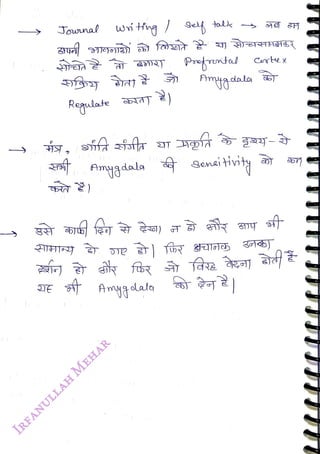 → Journal Writing / Self talk → जब हम
अपनी भावनाओं को लिखते है या सोचसमझकर
सोचते है तो हमारा Prefrontal Cortex
सक्रिय होता है जो Amygdala को
Regulate करता है।
→ मंत्र, शांति संगीत या प्रकृति के दृश्य - ये
सभी Amygdala की Sensitivity को कम
करते है।
→ उसे काफी दिन से देखा न हो और आप भी
सामान्य हो गए हो। फिर अचानक उनका
दर्शन हो और फिर जो विरह वेदना होती है
यह भी Amygdala की देन है।
IRFANULLAH MEHAR